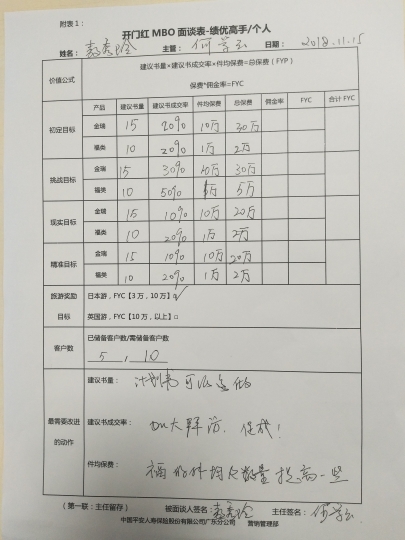 附表1：
开门红 MBO 面谈表-绩优高手/个人
姓名： 主管：何学云 日期：2018.11.15
价值公式 建议书量×建议书成交率×件均保费=总保费（FYP）
保费*佣金率=FYC
产品 建议书量 建议书成交率 件均保费 总保费 佣金率 FYC 合计 FYC
初定目标 金瑞 15 20% 10万 30万
福类 10 20% 1万 2万
挑战目标 金瑞 15 30% 10万 30万
福类 10 50% 1万 5万
现实目标 金瑞 15 10% 10万 20万
福类 10 20% 1万 2万
精准目标 金瑞 15 10% 10万 20万
福类 10 20% 1万 2万
旅游奖励目标 日本游，FYC【3 万，10 万】□✓
英国游，FYC【10 万，以上】□
客户数 已储备客户数/需储备客户数
5 , 10
最需要改进的动作 建议书量：计划书可以
建议书成交率：加大拜访、促成！
件均保费：件均 数量提高一些
（第一联：主任留存） 被面谈人签名： 主任签名：何学云
中国平安人寿保险股份有限公司广东分公司 营销管理部